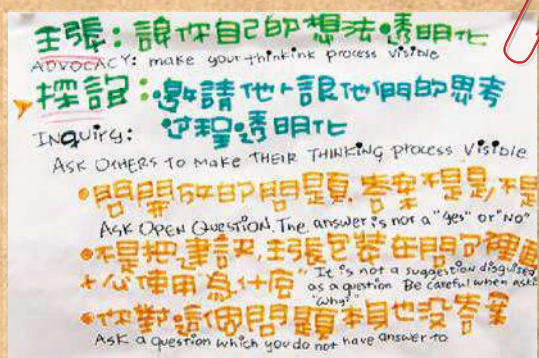 主張：讓你自己的想法透明化
ADVOCACY: make your thinkink process visible
探詢：邀請他人讓他們的思考
過程透明化
INQuiry:
ASK OTHERS TO Make THEIR THINKING process visible
•問開放的問題，答案不是是/不是
ASK OPEN QuesTION. The answer is not a "yes" or "NO"
•不是把建議，主張包裝在問句裡面
It is not a suggestion disguised
小心使用"為什麼"
as a question Be careful when aski
"why?"
•你對這個問題本身也沒答案
ASK a question which you do not have answer to